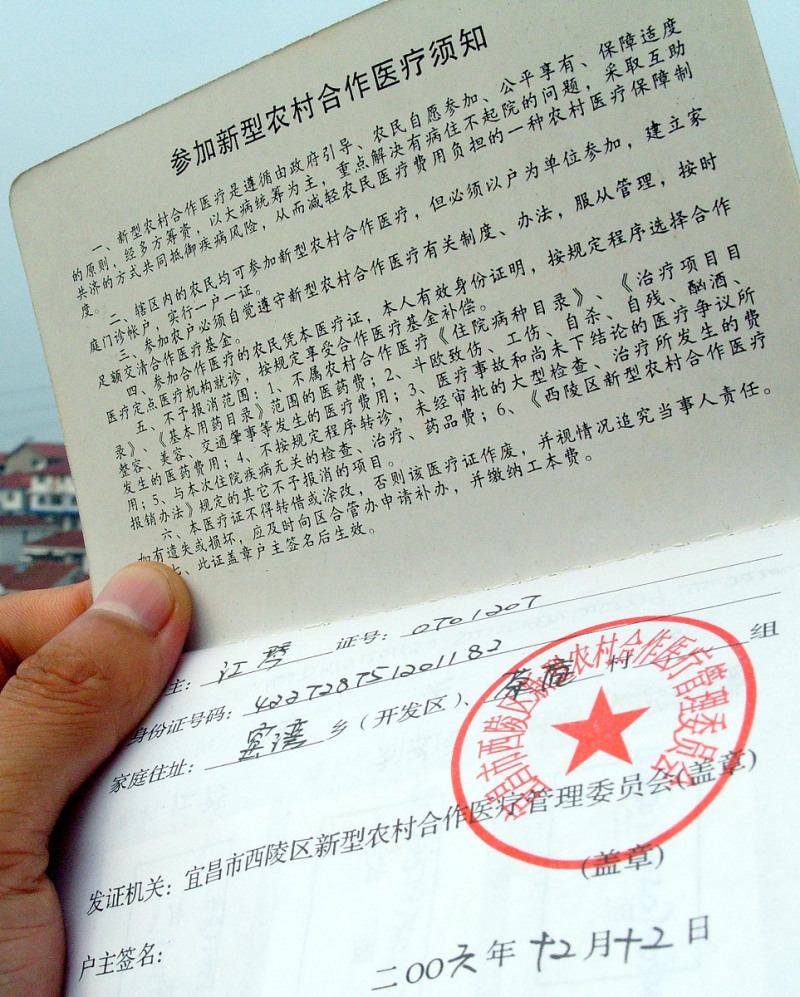 参加新型农村合作医疗须知
一、新型农村合作医疗是遵循由政府引导、农民自愿参加、公平享有、保障适度
的原则，经多方筹资，以大病统筹为主，重点解决有病住不起院的问题，采取互助
共济的方式共同抵御疾病风险，从而减轻农民医疗费用负担的一种农村医疗保障制
度。
二、辖区内的农民均可参加新型农村合作医疗，但必须以户为单位参加，建立家
庭门诊帐户，实行一户一证。
三、参加农户必须自觉遵守新型农村合作医疗有关制度、办法，服从管理，按时
足额交清合作医疗基金。
四、参加合作医疗的农民凭本医疗证，本人有效身份证明，按规定程序选择合作
医疗定点医疗机构就诊，按规定享受合作医疗基金补偿。
五、不予报消范围：1、不属农村合作医疗《住院病种目录》、《治疗项目目
录》、《基本用药目录》范围的医药费；2、斗欧致伤、工伤、自杀、自残、酗酒、
整容、美容、交通肇事等发生的医疗费用；3、医疗事故和尚未下结论的医疗争议所
发生的医药费用；4、不按规定程序转诊，未经审批的大型检查、治疗所发生的费
用；5、与本次住院疾病无关的检查、治疗、药品费；6、《西陵区新型农村合作医疗
报销办法》规定的其它不予报消的项目。
六、本医疗证不得转借或涂改，否则该医疗证作废，并视情况追究当事人责任。
如有遗失或损坏，应及时向区合管办申请补办，并缴纳工本费。
七、此证盖章户主签名后生效。
主：江 证号：0701207
身份证号码：422728751201182
家庭住址：窑湾 乡（开发区）、茶庵 村 组
宜昌市西陵区新型农村合作医疗管理委员会
发证机关：宜昌市西陵区新型农村合作医疗管理委员会(盖章)
(盖章)
户主签名：
二00六年十2月十2日